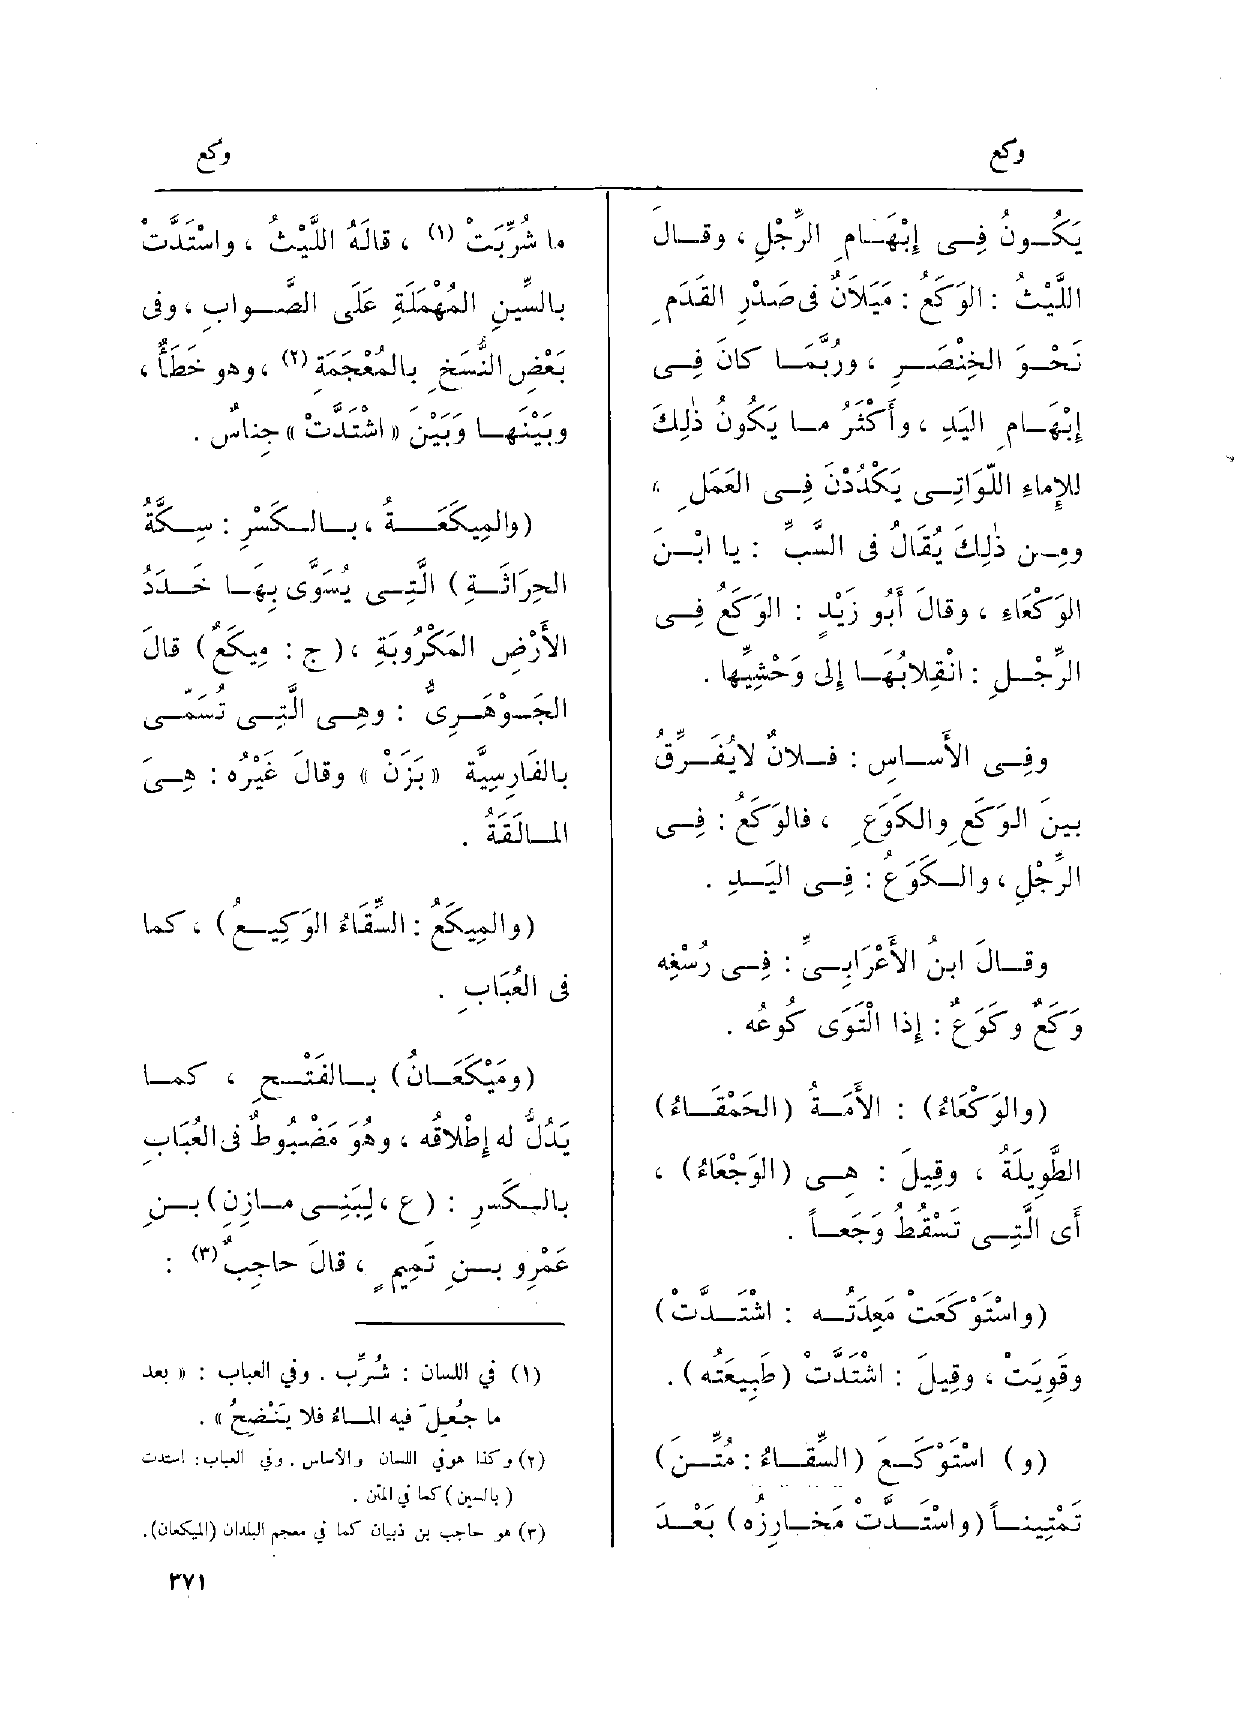 وكع
وكع
يَكُونُ فِى إِبْهَامِ الرِّجْلِ ، وقالَ
اللَّيْثُ : الوَكَعُ : مَيَلَانٌ فى صَدْرِ القَدَمِ
نَحْوَ الخِنْصَرِ ، ورُبَّمَا كانَ فِى
إِبْهَامِ اليَدِ ، وأَكْثَرُ ما يَكُونُ ذٰلِكَ
للإِماءِ اللَّوَاتِى يَكْدُدْنَ فِى العَمَلِ ،
ومِن ذٰلِكَ يُقَالُ فى السَّبِّ : يا ابْنَ
الوَكْعَاءِ ، وقالَ أَبُو زَيْدٍ : الوَكَعُ فِى
الرِّجْلِ : انْقِلابُهَا إِلى وَحْشِيِّها .
وفِى الأَساسِ : فلانٌ لايُفَرِّقُ
بينَ الوَكَعِ والكَوَعِ ، فالوَكَعُ : فِى
الرِّجْلِ ، والكَوَعُ : فِى اليَدِ .
وقالَ ابنُ الأَعْرَابِىِّ : فِى رُسْغِه
وَكَعٌ وكَوَعٌ : إِذا الْتَوَى كُوعُه .
(والوَكْعَاءُ) : الأَمَةُ (الحَمْقَاءُ)
الطَّوِيلَةُ ، وقِيلَ : هِى (الوَجْعَاءُ) ،
أَى الَّتِى تَسْقُطُ وَجَعاً .
(واسْتَوْكَعَتْ مَعِدَتُه : اشْتَدَّتْ)
وقَوِيَتْ ، وقِيلَ : اشْتَدَّتْ (طَبِيعَتُه) .
(و) اسْتَوْكَعَ (السِّقَاءُ : مُتِّنَ)
تَمْتِيناً (واسْتَدَّتْ مَخارِزُه) بَعْدَ
ما شُرِّبَتْ (١) ، قالَهُ اللَّيْثُ ، واسْتَدَّتْ
بالسِّينِ المُهْمَلَةِ عَلَى الصَّوابِ ، وفى
بَعْضِ النُّسَخِ بالمُعْجَمَةِ (٢) ، وهو خَطَأٌ ،
وبَيْنَها وَبَيْنَ « اشْتَدَّتْ » جِناسٌ .
(والمِيكَعَةُ ، بالكَسْرِ : سِكَّةُ
الحِرَاثَةِ) الَّتِى يُسَوَّى بِهَا خَدَدُ
الأَرْضِ المَكْرُوبَةِ ، (ج : مِيكَعٌ) قالَ
الجَوْهَرِىُّ : وهِى الَّتِى تُسَمَّى
بالفَارِسِيَّةِ « بَزَنْ » وقالَ غَيْرُه : هِىَ
المالَقَةُ .
(والمِيكَعُ : السِّقَاءُ الوَكِيعُ) ، كما
فى العُبَابِ .
(ومَيْكَعَانُ) بالفَتْحِ ، كما
يَدُلُّ له إِطْلاقُه ، وهُوَ مَضْبُوطٌ فى العُبَابِ
بالكَسْرِ : (ع ، لِبَنِى مازِنِ) بنِ
عَمْرِو بنِ تَمِيمٍ ، قالَ حاجِبٌ (٣) :
(١) في اللسان : شُرِّبَ . وفي العباب : « بعد
ما جُعِلَ فيه الماءُ فلا يَنْضِحُ » .
(٢) وكذا هو في اللسان والأساس . وفي العباب : استدت
(بالسين) كما في المتن .
(٣) هو حاجب بن ذبيان كما في معجم البلدان (الميكعان).
٣٧١